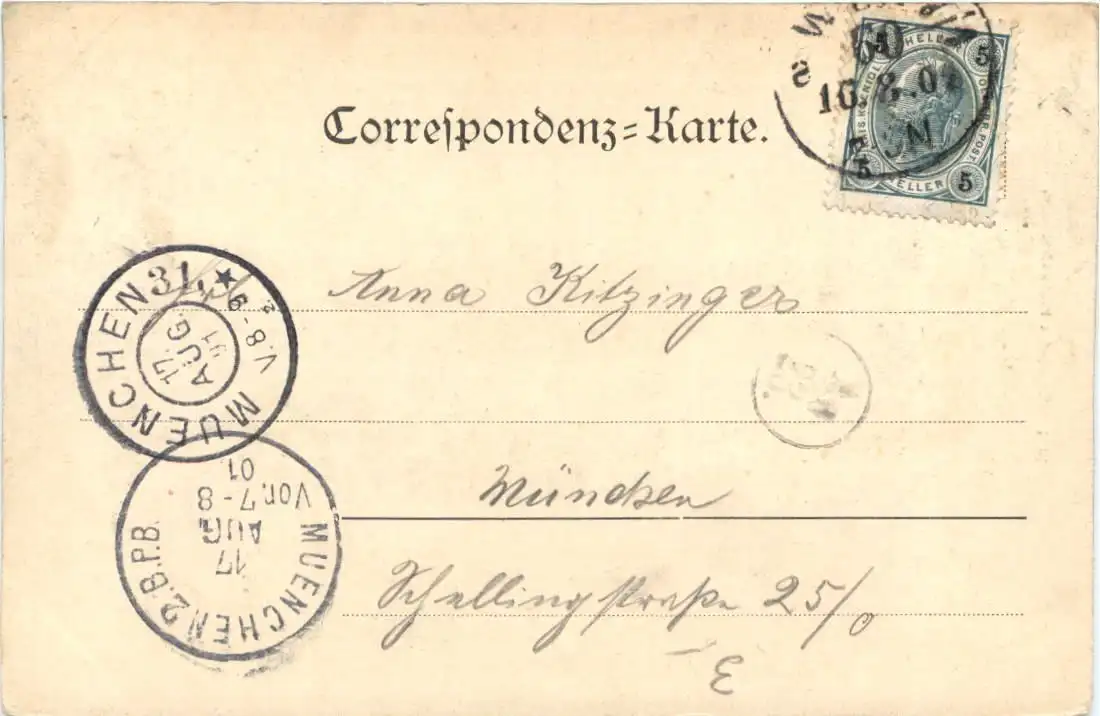 Correspondenz-Karte.
5 HELLER 5
5 HELLER 5
16.8.01
Anna Kitzinger
München
Schellingstraße 25/0
E
MUENCHEN 31. ★
V.8-9
17.
AUG.
01
MUENCHEN
MUENCHEN 2.B.P.B.
17
AUG.
Vor. 7-8
01